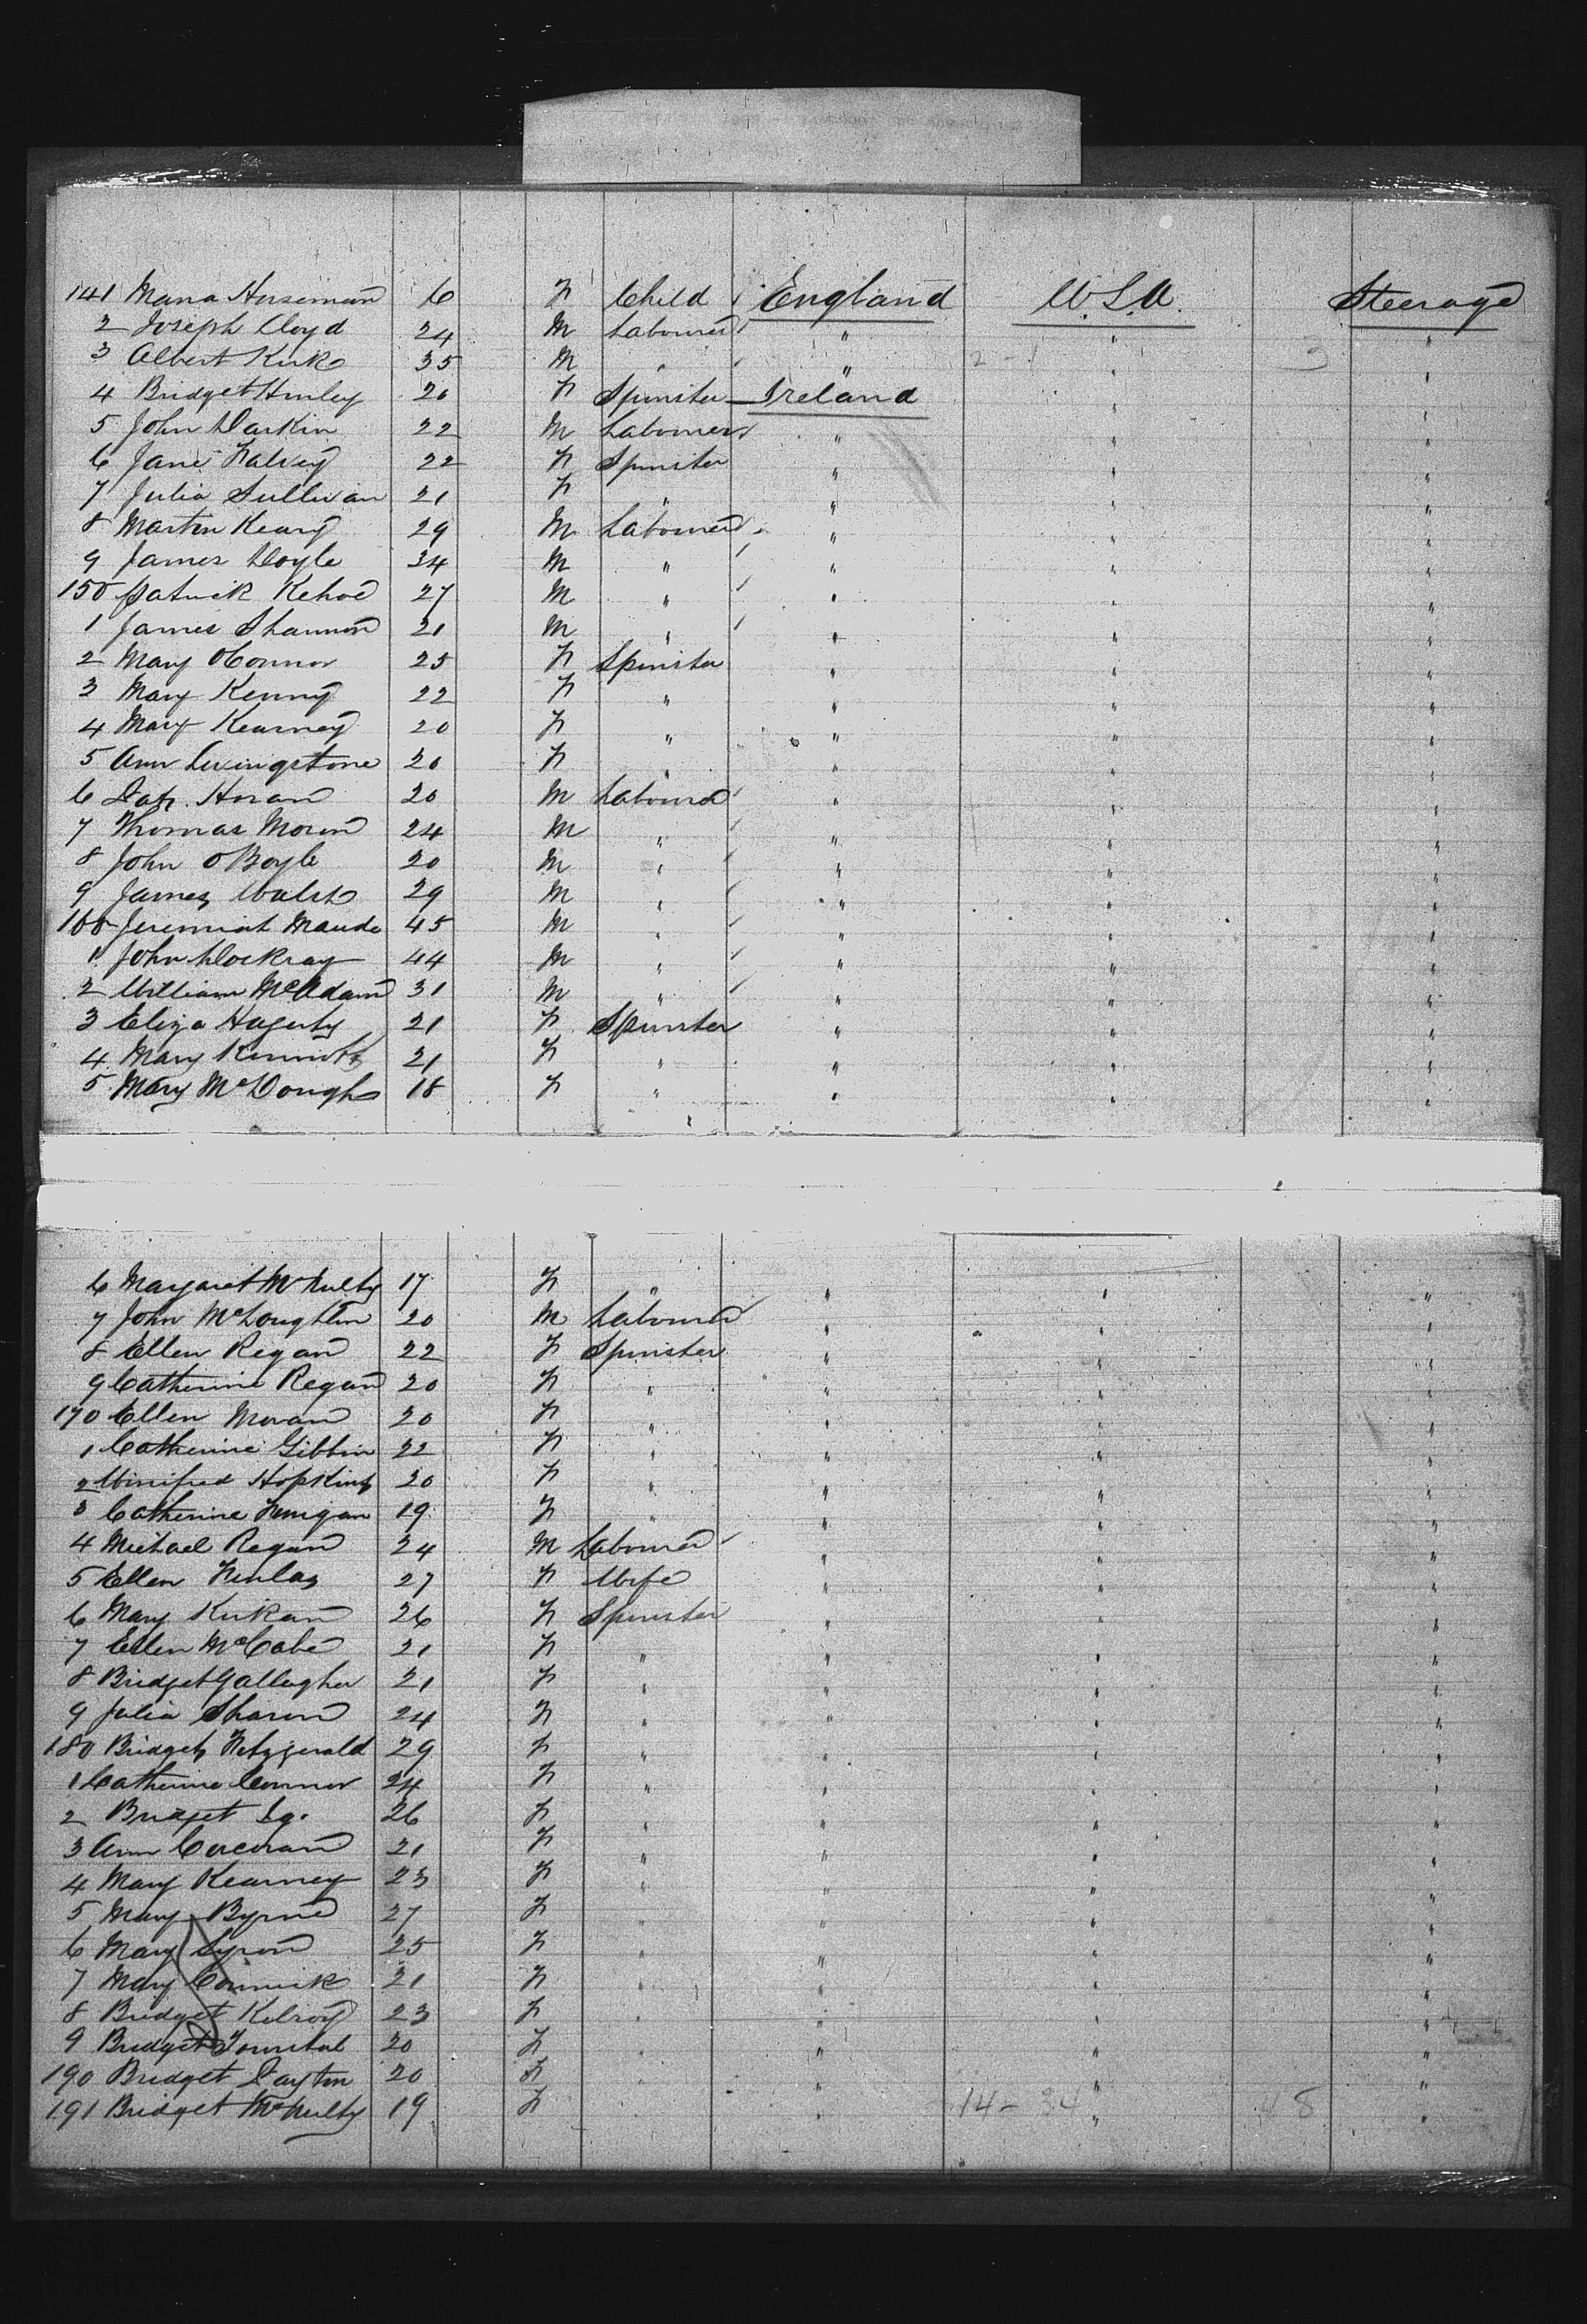 141 Maria Huseman 6 F Child England U.S.A. Steerage
2 Joseph Lloyd 24 M Labourer " " "
3 Albert Kirk 35 M " " " "
4 Bridget Hurley 20 F Spinster Ireland " "
5 John Darkin 22 M Labourer " " "
6 Jane Falvey 22 F Spinster " " "
7 Julia Sullivan 21 F " " " "
8 Martin Keary 29 M Labourer " " "
9 James Doyle 34 M " " " "
150 Patrick Kehoe 27 M " " " "
1 James Shannon 21 M " " " "
2 Mary OConnor 25 F Spinster " " "
3 Mary Kenny 22 F " " " "
4 Mary Kearney 20 F " " " "
5 Ann Livingstone 20 F " " " "
6 Pat. Horan 20 M Labourer " " "
7 Thomas Moran 24 M " " " "
8 John OBoyle 20 M " " " "
9 James Walsh 29 M " " " "
160 Jeremiah Maude 45 M " " " "
1 John Dockray 44 M " " " "
2 William McAdam 31 M " " " "
3 Eliza Hagerty 21 F Spinster " " "
4 Mary 21 F " " " "
5 Mary McDough 18 F " " " "
6 Margaret McNulty 17 F " " " "
7 John McLoughlin 20 M Labourer " " "
8 Ellen Regan 22 F Spinster " " "
9 Catherine Regan 20 F " " " "
170 Ellen Moran 20 F " " " "
1 Catherine Gibbin 22 F " " " "
2 Winifred Hopkins 20 F " " " "
3 Catherine Finigan 19 F " " " "
4 Michael Regan 24 M Labourer " " "
5 Ellen Finlay 27 F Wife " " "
6 Mary Kirkan 26 F Spinster " " "
7 Ellen McCabe 21 F " " " "
8 Bridget Gallagher 21 F " " " "
9 Julia Sharon 24 F " " " "
180 Bridget Fitzgerald 29 F " " " "
1 Catherine Connor 24 F " " " "
2 Bridget Do. 26 F " " " "
3 Ann Corcoran 21 F " " " "
4 Mary Kearney 23 F " " " "
5 Mary Byrne 27 F " " " "
6 Mary Lyon 25 F " " " "
7 Mary Cormick 21 F " " " "
8 Bridget Kilroy 23 F " " " "
9 Bridget 20 F " " " "
190 Bridget Layton 20 F " " " "
191 Bridget McNulty 19 F " " 14 - 34 " 48 "